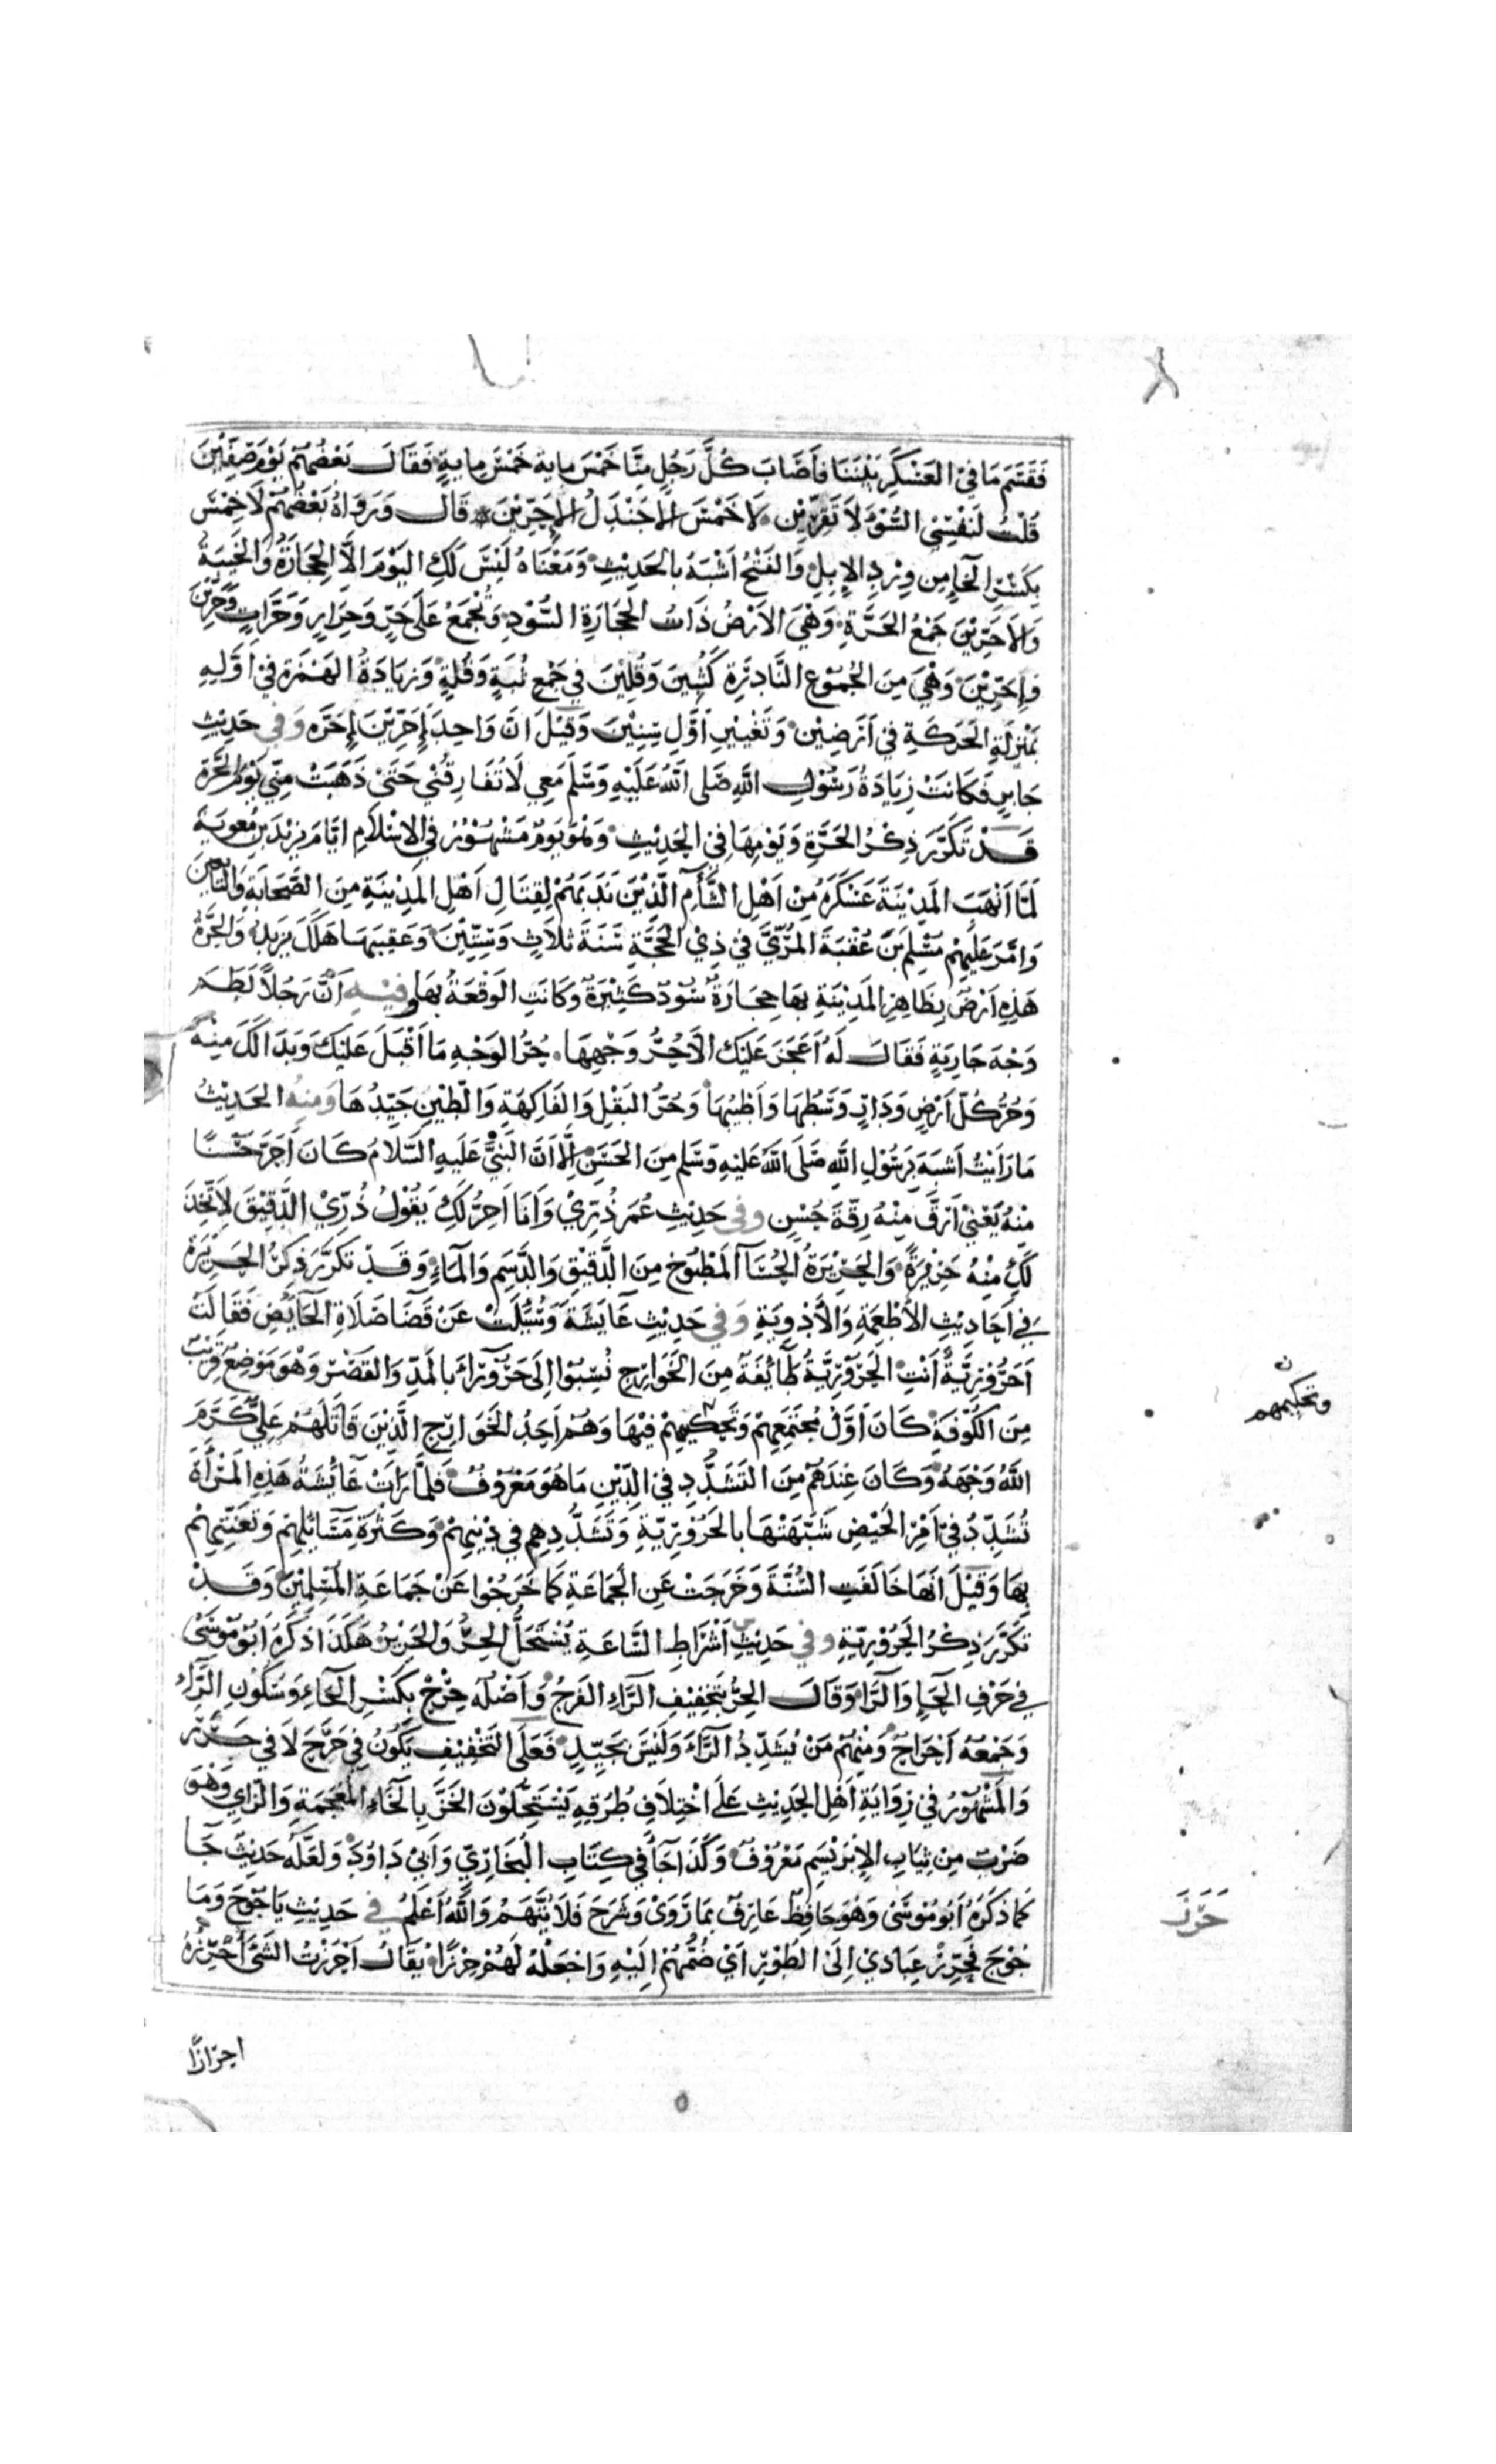 فَقَسَّمَ مَا فِي العَسْكَرِ بَيْنَنَا فَأَصَابَ كُلَّ رَجُلٍ مِنَّا خَمْسَ مِايةٍ خَمْسَ مِايةٍ فَقَالَ بَعْضُهُمْ يَوْمَ صِفِّيْنَ
قُلْتُ لِنَفْسِي السُّوْءِ لَا تَفِرِّيْن لَا خَمْسَ إِلَّا جَنْدَلُ الإِحَرِّيْنَ قَالَ وَرَوَاهُ بَعْضُهُمْ لَا خِمْسَ
بِكَسْرِ الخَاءِ مِن وِرْدِ الإِبِلِ وَالفَتْحُ أَشْبَهُ بِالحَدِيْثِ وَمَعْنَاهُ لَيْسَ لَكِ اليَوْمَ إِلَّا الحِجَارَةُ وَالخَيْبَةُ
وَالإِحَرِّيْنَ جَمْعُ الحَرَّةِ وَهْيَ الأَرْضُ ذَاتُ الحِجَارَةِ السُّوْدِ وَتُجْمَعُ عَلَى حَرٍّ وَحِرَارٍ وَحَرَّاتٍ وَحَرِّيْنَ
وَإِحَرِّيْنَ وَهْيَ مِنَ الجُمُوْعِ النَّادِرَةِ كَثُبِيْنَ وَقُلِيْنَ فِي جَمْعِ ثُبَةٍ وَقُلَةٍ وَزِيَادَةُ الهَمْزَةِ فِي أَوَّلِهِ
بِمَنْزِلَةِ الحَرَكَةِ فِي أَرَضِيْن وَتَغْيِيْرِ أَوَّلِ سِنِيْنَ وَقِيْلَ انَّ وَاحِدَ إِحَرِّيْنَ إِحَرَّه وَفِي حَدِيْثِ
جَابِرٍ فَكَانَتْ زِيَادَةُ رَسُوْلِ اللَّهِ صَلَى اللهُ عَلَيْهِ وَسَلَّمَ مَعِي لَا تُفَارِقُنِي حَتَّى ذَهَبَتْ مِنِّي يَوْمَ الحَرَّةِ
قَدْ تَكَرَّرَ ذِكْرُ الحَرَّةِ وَيَوْمِهَا فِي الحَدِيْثِ وَهُوَ يَوْمٌ مَشْهُوْرٌ فِي الإِسْلَامِ ايَّامَ يَزِيْدَ بْنِ مُعوِيَةَ
لَمَّا أَنْهَبَ المَدِيْنَةَ عَسْكَرَهُ مِنْ أَهْلِ الشَّأْمِ الَّذِيْنَ نَدَبَهُمْ لِقِتَالِ أَهْلِ المَدِيْنَةِ مِنَ الصَّحَابَةِ وَالتَّابِعِيْنَ
وَامَّرَ عَلَيْهِمْ مُسْلِمَ بْنَ عُقْبَةَ المُرِّيَّ فِي ذِيْ الحِجَّةِ سَنَةَ ثَلَاثٍ وَسِتِّيْنَ وَعَقِيْبَهَا هَلَكَ يَزِيْدُ وَالحَرَّةُ
هَذِهِ أَرْضٌ بِظَاهِرِ المَدِيْنَةِ بِهَا حِجَارَةٌ سُوْدٌ كَثِيْرَةٌ وَكَانَتِ الوَقْعَةُ بِهَا وفِيْهِ أَنَّ رَجُلاً لَطَمَ
وَجْهَ جَارِيَةٍ فَقَالَ لَهُ أَعَجَزَ عَلَيْكَ إِلَّا حُرُّ وَجْهِهَا حُرُّ الوَجْهِ مَا أَقْبَلَ عَلَيْكَ وَبَدَا لَكَ مِنْهُ
وَحُرُّ كُلِّ أَرْضٍ وَدَارٍ وَسَطُهَا وَأَطْيَبُهَا وَحُرُّ البَقْلِ وَالفَاكِهَةِ وَالطِّيْنِ جَيِّدُهَا وَمِنْهُ الحَدِيْثُ
مَا رَأَيْتُ أَشْبَهَ بِرَسُوْلِ اللَّهِ صَلَى اللهُ عَلَيْهِ وَسَلَّمَ مِنَ الحَسَنِ إِلَّا أَنَّ النَبِيَّ عَلَيْهِ السَّلَامُ كَانَ أَحَرَّ حُسْنًا
مِنْهُ يَعْنِي أَرَقَّ مِنْهُ رِقَّةَ حُسْنٍ وفي حَدِيْثِ عُمَرَ ذُرِّيْ وَأَنَا أَحِرُّ لَكِ يَقُوْلُ ذُرِّيْ الدَّقِيْقَ لِأَتَّخِذَ
لَكِ مِنْهُ حَرِيْرَةً وَالحَرِيْرَةُ الحُسَا المَطْبُوْخُ مِنَ الدَّقِيْقِ وَالدَّسَمِ وَالمَاءِ وَقَدْ تَكَرَّرَ ذِكْرُ الحَرِيْرَةِ
فِي أَحَادِيْثِ الأَطْعِمَةِ وَالأَدْوِيَةِ وَفِي حَدِيْثِ عَايشَةَ وَسُئِلَتْ عَنْ قَضَا صَلَاةِ الحَائِضِ فَقَالَتْ
أَحَرُوْرِيَّةٌ أَنْتِ الحَرُوْرِيَّةُ طَائِفَةٌ مِنَ الخَوَارِجِ نُسِبُوْا إِلَى حَرُوْرَاءَ بِالمَدِّ وَالقَصْرِ وَهْوَ مَوْضِعٌ قَرِيْبٌ
مِنَ الكُوْفَةِ كَانَ أَوَّلُ مُجْتَمَعِهِمْ وَتَحْكِيْمِهِمْ فِيْهَا وَهُمْ أَحَدُ الخَوَارِجِ الَّذِيْنَ قَاتَلَهُمْ عَلِيٌّ كَرَّمَ
اللَّهُ وَجْهَهُ وَكَانَ عِنْدَهُمْ مِنَ التَشَدُّدِ فِي الدِّيْنِ مَا هُوَ مَعْرُوْفٌ فَلَمَّا رَأَتْ عَائِشَةُ هَذِهِ المَرْأَةَ
تُشَدِّدُ فِي أَمْرِ الحَيْضِ شَبَّهَتْهَا بِالحَرُوْرِيَّةِ وَتَشَدُّدِهِم فِي دِيْنِهِمْ وَكَثْرَةِ مَسَائِلِهِمْ وَتَعَنُّتِهِمْ
بِهَا وَقِيْلَ أَنهَا خَالَفَتِ السُّنَّةَ وَخَرَجَتْ عَنِ الجَمَاعَةِ كَمَا خَرَجُوْا عَنْ جَمَاعَةِ المُسْلِمِيْنَ وَقَدْ
تَكَرَّرَ ذِكْرُ الحَرُوْرِيَّةِ وفي حَدِيْثِ أَشْرَاطِ السَّاعَةِ يُسْتَحَلُّ الحِرُ وَالحَرِيْرُ هَكَذَا ذَكَرَهُ ابُوْ مُوْسَى
فِي حَرْفِ الحَاءِ وَالرَّاءِ وَقَالَ الحِرُ بِتَخْفِيْفِ الرَّاءِ الفَرْجُ وَأَصْلُهُ حِرْحٌ بِكَسْرِ الحَاءِ وَسُكُوْنِ الرَّاءِ
وَجَمْعُهُ أَحْرَاحٌ وَمِنْهُمْ مَنْ يُشَدِّدُ الرَّاءَ وَلَيْسَ بِجَيِّدٍ فَعَلَى التَخْفِيْفِ يَكُوْنُ فِي حَرَحَ لَا فِي حَرَرَ
وَالمَشْهُوْرُ فِي رِوَايَةِ أَهْلِ الحَدِيْثِ عَلَى اخْتِلَافِ طُرُقِهِ يَسْتَحِلُّوْنَ الخَزَّ بِالخَاءِ المُعْجَمَةِ وَالزَّايِ وَهْوَ
ضَرْبٌ مِنْ ثِيَابِ الإِبْرَيْسَمِ مَعْرُوْفٌ وَكَذَا جَاءَ فِي كِتَابِ البُخَارِيِّ وَأَبِيْ دَاوُدَ وَلَعَلَّهُ حَدِيْثٌ جَا
كَمَا ذَكَرَهُ أَبُوْ مُوْسَى وَهُوَ حَافِظٌ عَارِفٌ بِمَا رَوَى وَشَرَحَ فَلَا يُتَّهَمُ وَاللَّهُ أَعْلَمُ في حَدِيْثِ يَاجُوْجَ وَمَا
جُوْجَ فَحَرِّزْ عِبَادِيْ إِلَى الطُوْرِ أَيْ ضُمَّهُمْ إِلَيْهِ وَاجْعَلْهُ لَهُمْ حِرْزًا يُقَالُ أَحْرَزْتُ الشَّيْءَ أُحْرِزُهُ
احرَازًا
وتحكيمهم
حَرَزَ